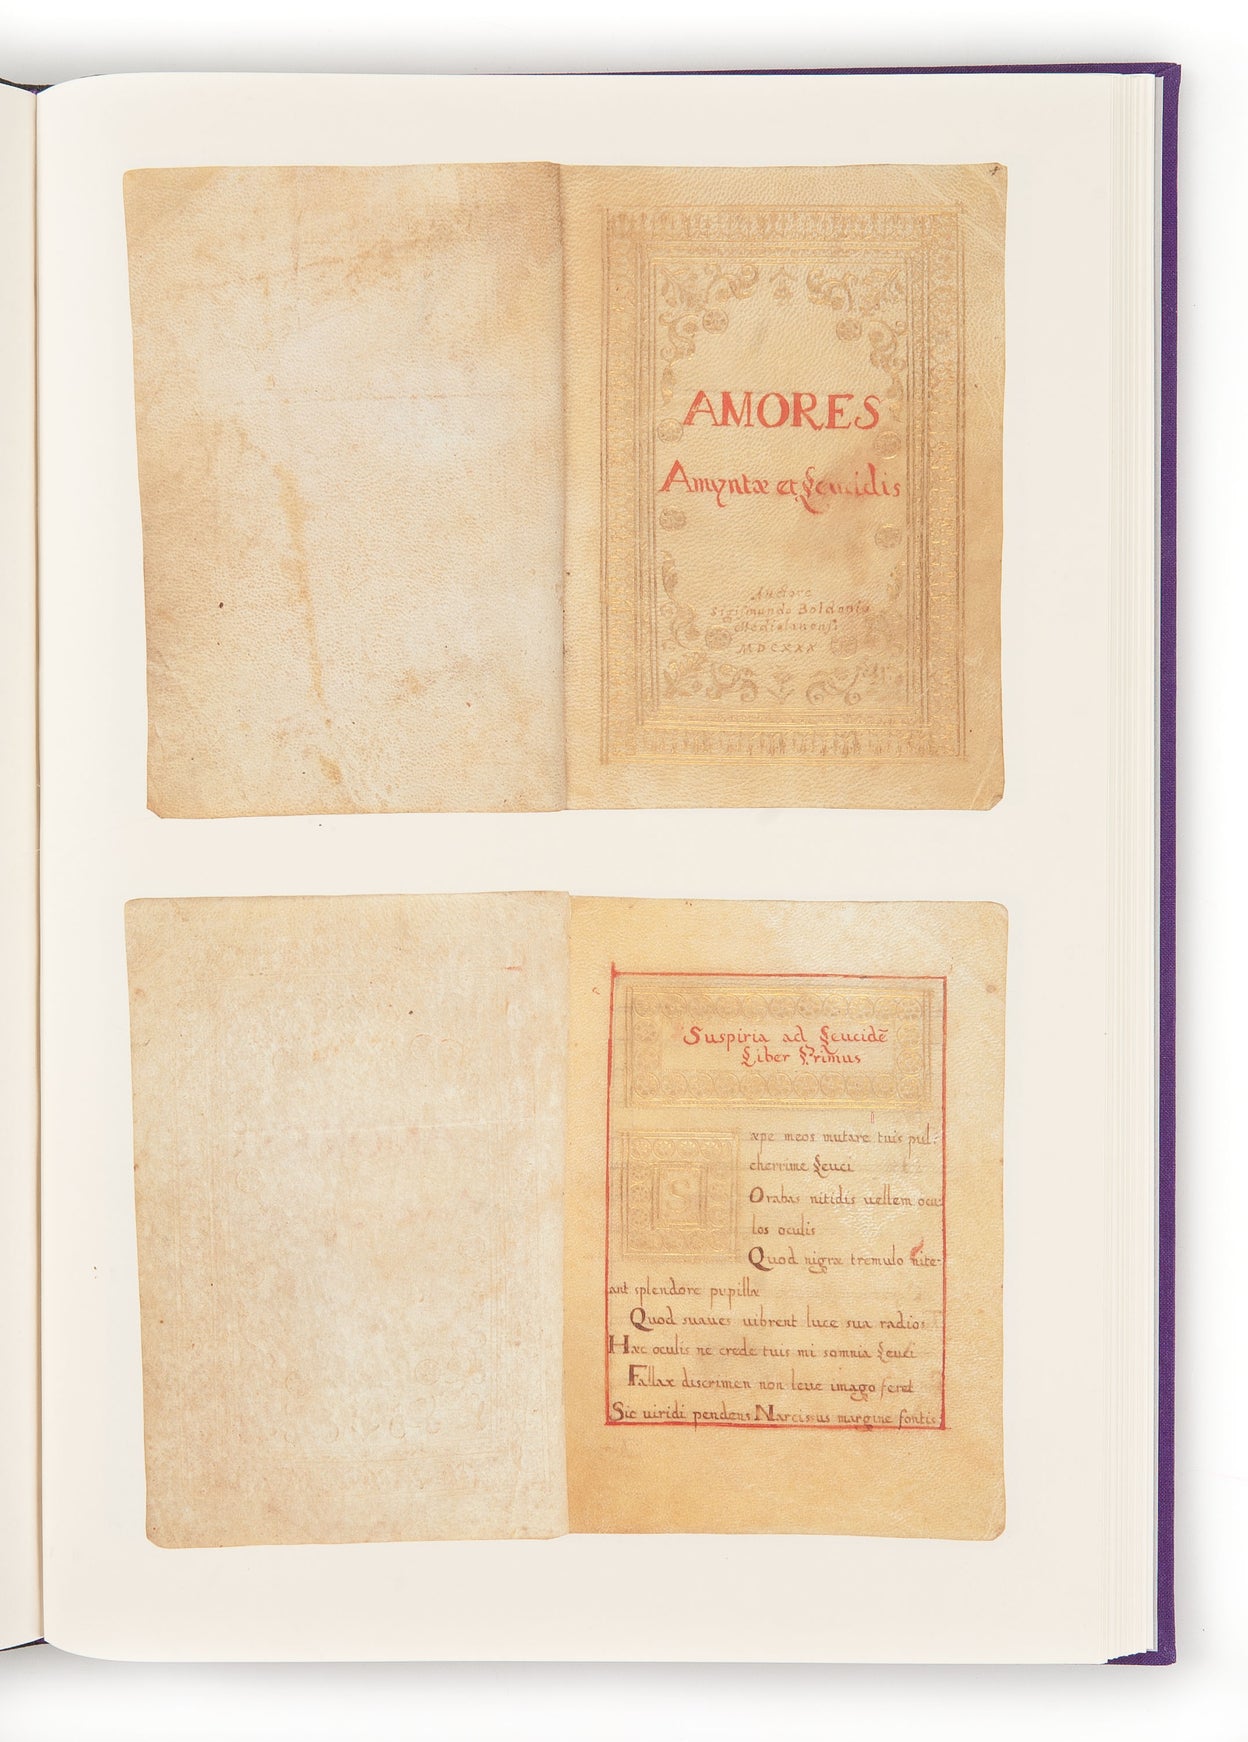 AMORES
Amyntæ et Leucidis
Auctore
Sigismundo Boldonio
Mediolanensi
MDCXXX
Suspiria ad Leucidē
Liber Primus
S
æpe meos mutare tuis pul-
cherrime Leuci
Orabas nitidis uellem ocu-
los oculis
Quod nigræ tremulo nite-
ant splendore pupillæ
Quod suaues uibrent luce sua radios
Hæc oculis ne crede tuis mi somnia Leuci
Fallax discrimen non leue imago feret
Sic uiridi pendens Narcissus margine fontis